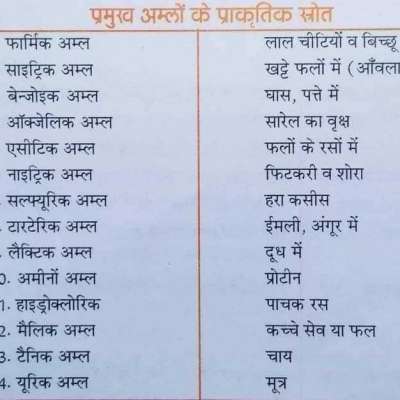 प्रमुख अम्लों के प्राकृतिक स्रोत
फार्मिक अम्ल लाल चीटियों व बिच्छू
साइट्रिक अम्ल खट्टे फलों में (आँवला
बेन्जोइक अम्ल घास, पत्ते में
ऑक्जेलिक अम्ल सारेल का वृक्ष
एसीटिक अम्ल फलों के रसों में
नाइट्रिक अम्ल फिटकरी व शोरा
सल्फ्यूरिक अम्ल हरा कसीस
टारटेरिक अम्ल ईमली, अंगूर में
लैक्टिक अम्ल दूध में
0. अमीनों अम्ल प्रोटीन
1. हाइड्रोक्लोरिक पाचक रस
2. मैलिक अम्ल कच्चे सेव या फल
3. टैनिक अम्ल चाय
4. यूरिक अम्ल मूत्र